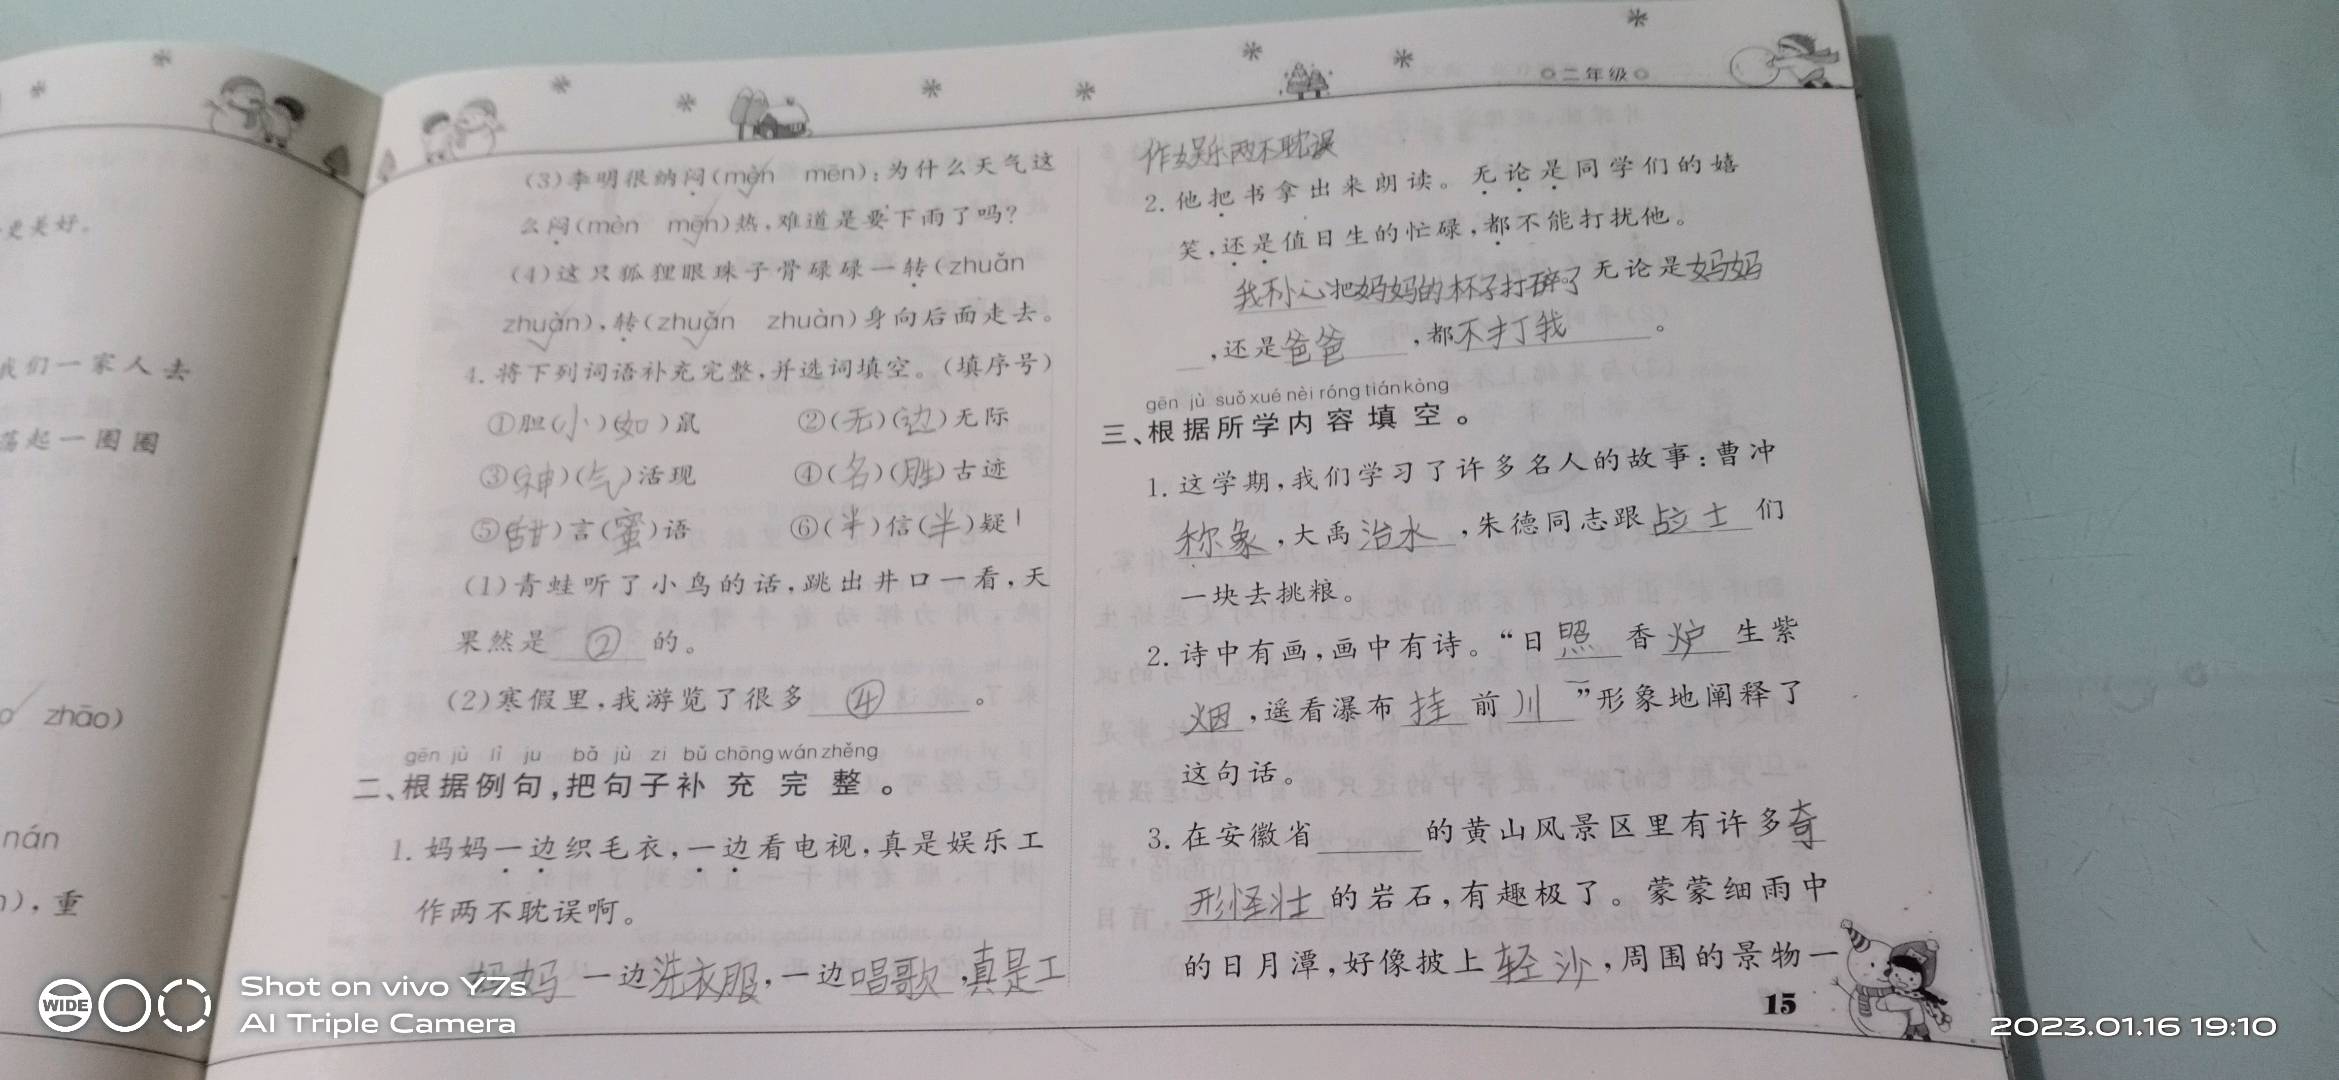 更美好。
我们一家人去
荡起一圈圈
zhāo)
nán
),重
(3)李明很纳闷(mèn mēn):为什么天气这
么闷(mèn mēn)热,难道是要下雨了吗?
(4)这只狐狸眼珠子骨碌碌一转(zhuǎn
zhuàn),转(zhuǎn zhuàn)身向后面走去。
4.将下列词语补充完整,并选词填空。(填序号)
①胆(小)(如)鼠 ②(无)(边)无际
③(神)(气)活现 ④(名)(胜)古迹
⑤(甜)言(蜜)语 ⑥(半)信(半)疑
(1)青蛙听了小鸟的话,跳出井口一看,天
果然是②的。
(2)寒假里,我游览了很多④。
gēn jù lì ju bǎ jù zi bǔ chōng wán zhěng
二、根据例句,把句子补充完整。
1.妈妈一边织毛衣,一边看电视,真是娱乐工
作两不耽误啊。
妈妈一边洗衣服,一边唱歌,真是工
二年级
作娱乐两不耽误
2.他把书拿出来朗读。无论是同学们的嬉
笑,还是值日生的忙碌,都不能打扰他。
我不小心把妈妈的杯子打碎了无论是妈妈
,还是爸爸,都不打我。
gēn jù suǒ xué nèi róng tián kòng
三、根据所学内容填空。
1.这学期,我们学习了许多名人的故事:曹冲
称象,大禹治水,朱德同志跟战士们
一块去挑粮。
2.诗中有画,画中有诗。“日照香炉生紫
烟,遥看瀑布挂前川”形象地阐释了
这句话。
3.在安徽省的黄山风景区里有许多奇
形怪壮的岩石,有趣极了。蒙蒙细雨中
的日月潭,好像披上轻沙,周围的景物一
15
WIDE
Shot on vivo Y7s
AI Triple Camera
2023.01.16 19:10